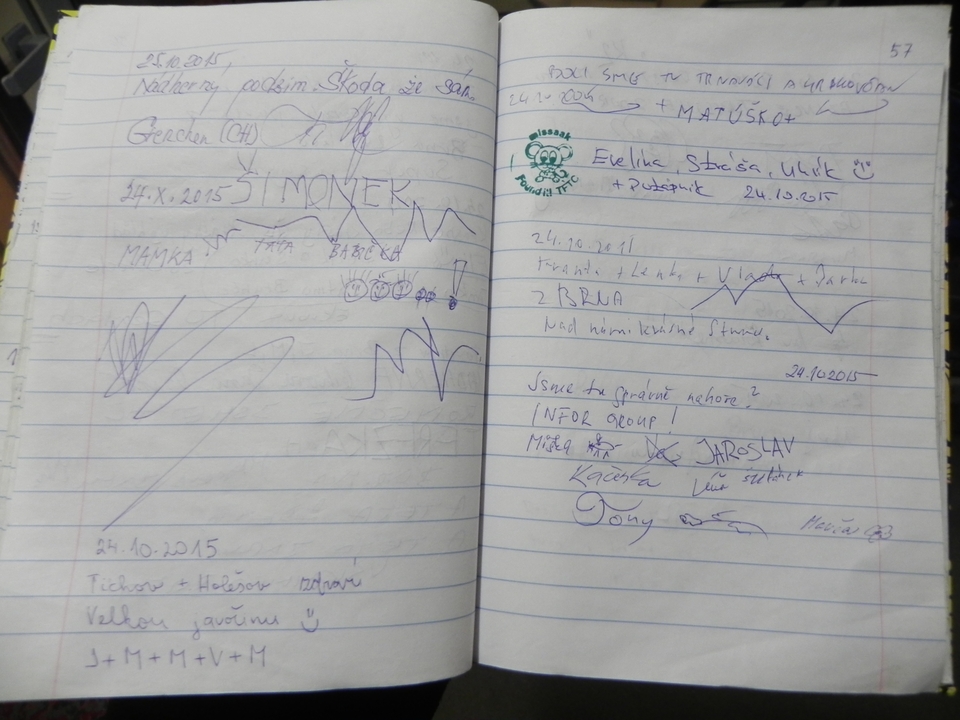 25.10.2015,
Nádherný podzim. Škoda, že
Grenchen (CH)
27.X.2015 ŠIMONEK
MAMKA TÁTA BABIČKA
24.10.2015
Tichov + Holešov zdraví
Velkou javořinu
J+M+M+V+M
57
BOLI SME TU TRNAVÁCI
+ MATÚŠKO+
missaak
Found it! TFTC
Evelina, Straša, Uhrík
24.10.2015
24.10.2015
Franta + Lenka + Vlada + Jarka
Z BRNA
Nad námi krásné slunce.
24.10.2015
Jsme tu správně nahoře?
INFOR group!
Miška JAROSLAV
Kačenka
Tony